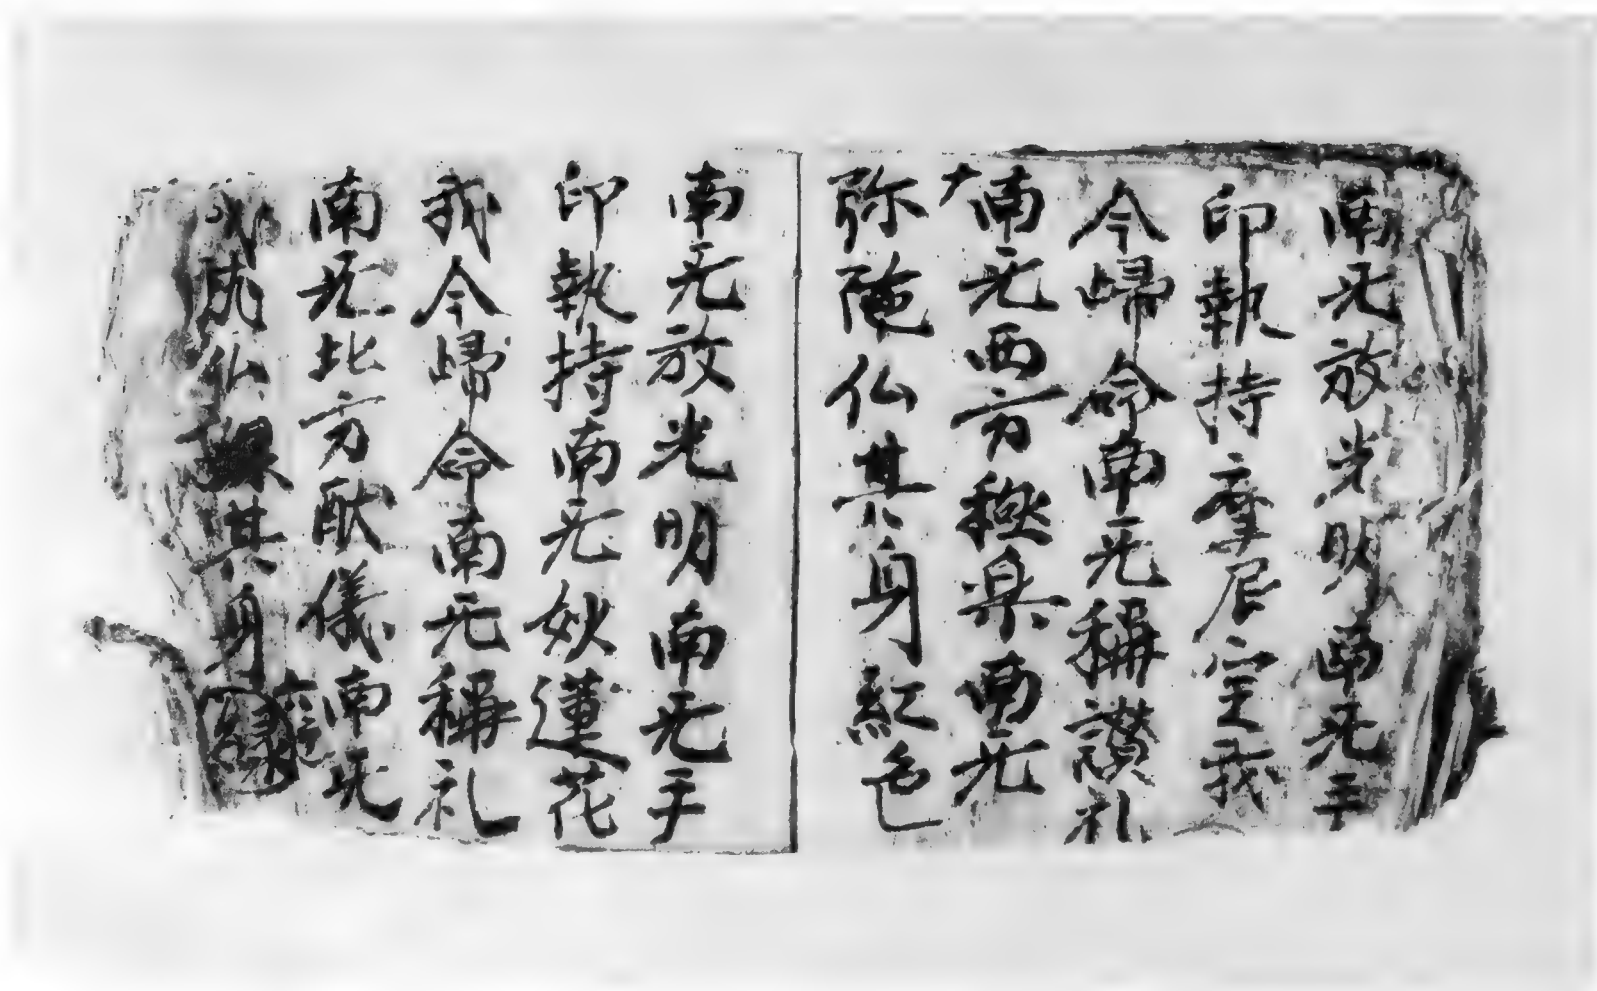 南无放光明南无手
印執持摩尼宝我
今歸命南无稱讃礼
南无西方極楽南无
弥陁仏其身紅色
南无放光明南无手
印執持南无妙蓮花
我今歸命南无稱礼
南无北方猷儀南无
成仏其身